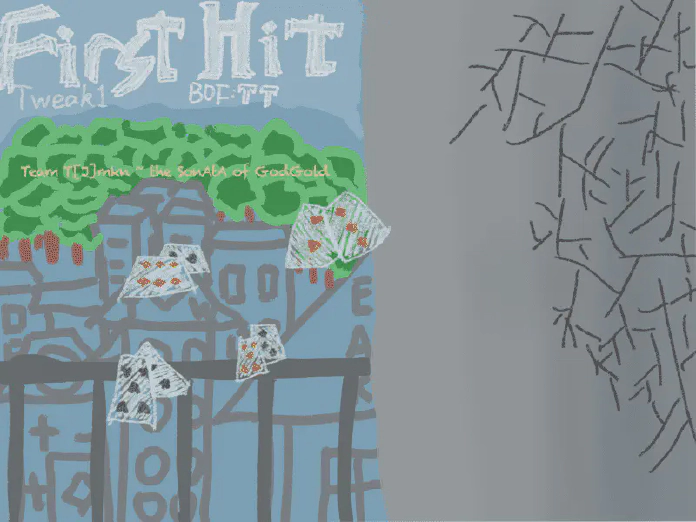 First Hit
Tweak1 BOF:TT
Team T[J]mkn ~ the SonAtA of GodGold
E
A